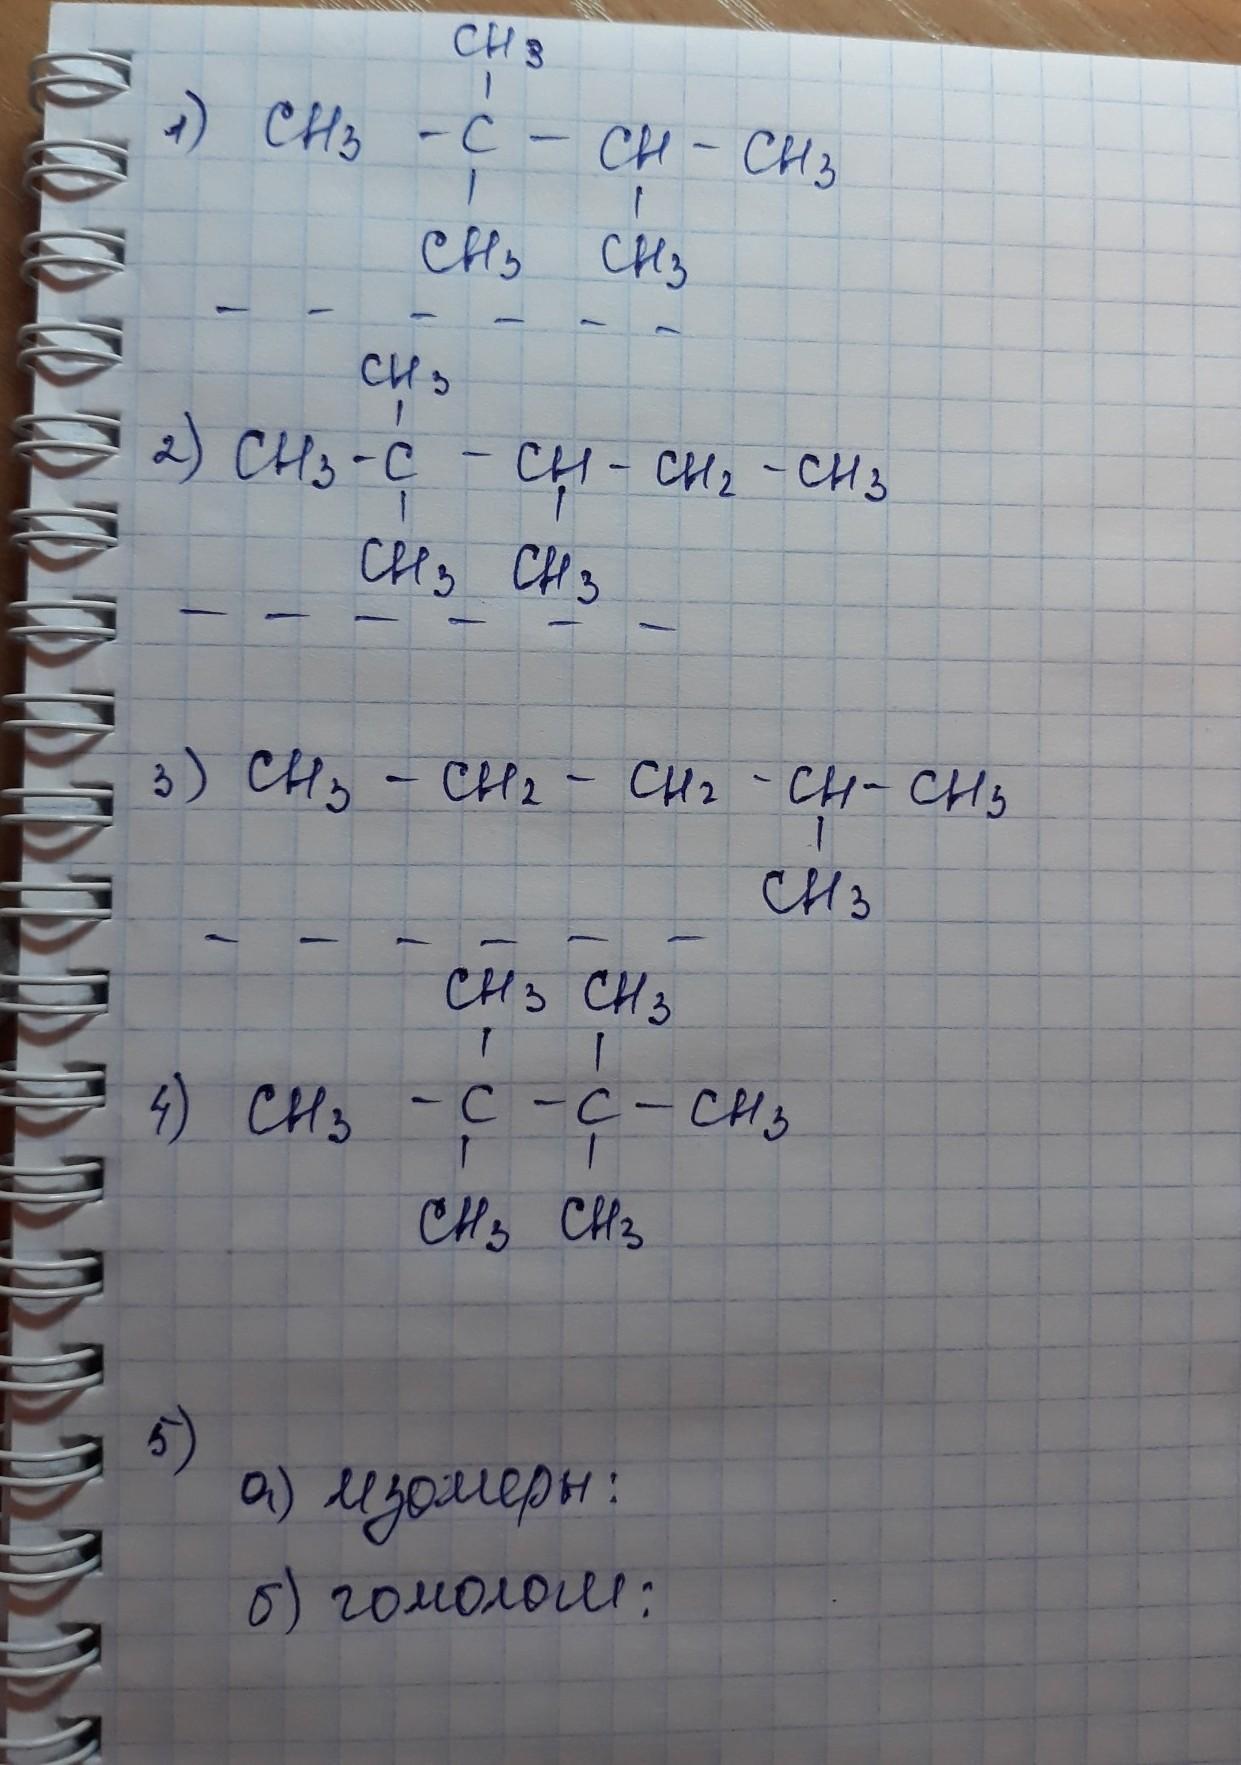 CH3
1) CH3 - C - CH - CH3
CH3 CH3
- - - - - -
CH3
2) CH3 - C - CH - CH2 - CH3
CH3 CH3
- - - - - -
3) CH3 - CH2 - CH2 - CH - CH3
CH3
- - - - - -
CH3 CH3
4) CH3 - C - C - CH3
CH3 CH3
5)
а) изомеры:
б) гомологи: